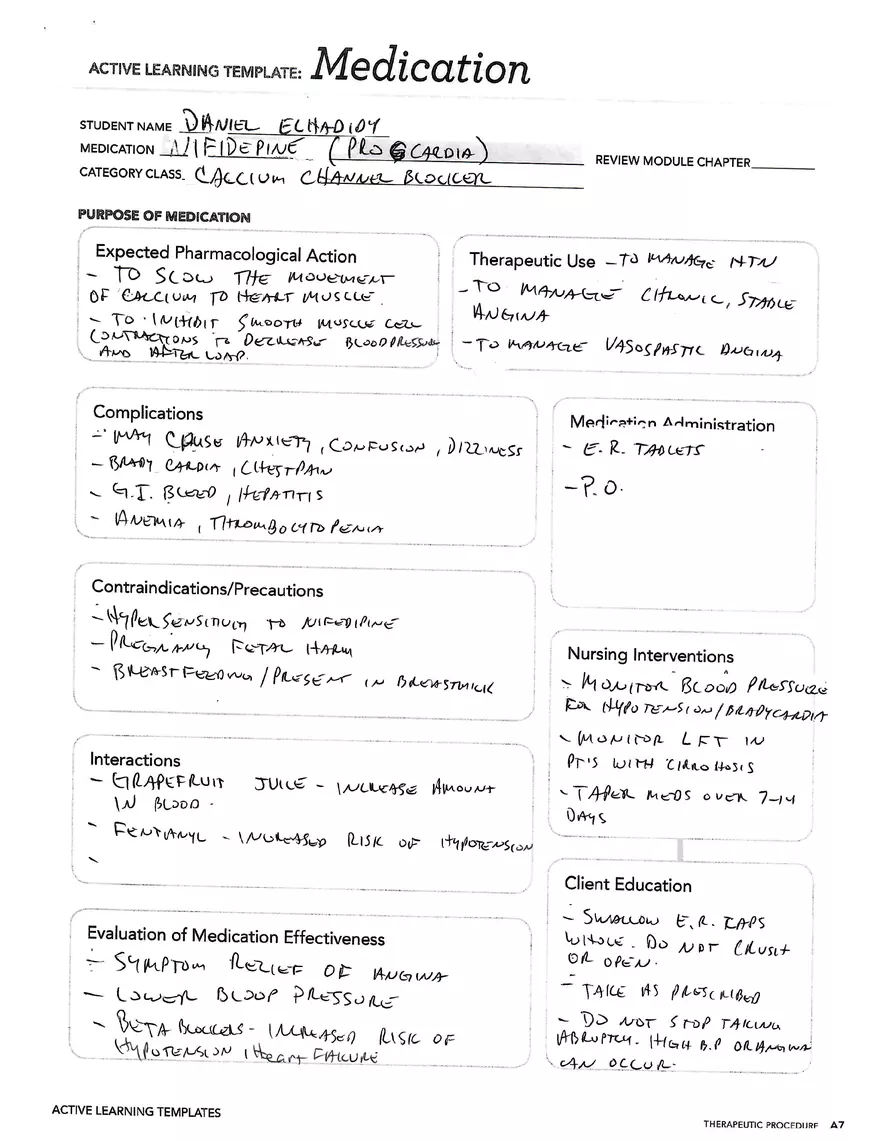 ACTIVE LEARNING TEMPLATE: Medication
STUDENT NAME DANIEL ELHADIDY
MEDICATION NIFIDEPINE (PROCARDIA)
REVIEW MODULE CHAPTER
CATEGORY CLASS CALCIUM CHANNEL BLOCKER
PURPOSE OF MEDICATION
Expected Pharmacological Action
- TO SLOW THE MOVEMENT
OF CALCIUM TO HEART MUSCLE.
- TO INHIBIT SMOOTH MUSCLE CELL
CONTRACTIONS TO DECREASE BLOOD PRESSURE
AND AFTER LOAD.
Therapeutic Use - TO MANAGE HTN
- TO MANAGE CHRONIC, STABLE
ANGINA
- TO MANAGE VASOSPASTIC ANGINA
Complications
- MAY CAUSE ANXIETY, CONFUSION, DIZZINESS
- BRADY CARDIA, CHEST PAIN
- G.I. BLEED, HEPATITIS
- ANEMIA, THROMBOCYTOPENIA
Medication Administration
- E.R. TABLETS
- P.O.
Contraindications/Precautions
- HYPERSENSITIVITY TO NIFEDIPINE
- PREGNANCY FETAL HARM
- BREASTFEEDING/PRESENT IN BREASTMILK
Nursing Interventions
- MONITOR BLOOD PRESSURE
FOR HYPOTENSION/BRADYCARDIA
- MONITOR LFT IN
PT'S WITH CIRRHOSIS
- TAPER MEDS OVER 7-14
DAYS
Interactions
- GRAPEFRUIT JUICE - INCREASE AMOUNT
IN BLOOD.
- FENTANYL - INCREASED RISK OF HYPOTENSION
-
Client Education
- SWALLOW E.R. CAPS
WHOLE. DO NOT CRUSH
OR OPEN.
- TAKE AS PRESCRIBED
- DO NOT STOP TAKING
ABRUPTLY. HIGH B.P OR ANGINA
CAN OCCUR.
Evaluation of Medication Effectiveness
- SYMPTOM RELIEF OF ANGINA
- LOWER BLOOD PRESSURE
- BETA BLOCKERS - INCREASED RISK OF
HYPOTENSION, Heart FAILURE
ACTIVE LEARNING TEMPLATES
THERAPEUTIC PROCEDURE A7